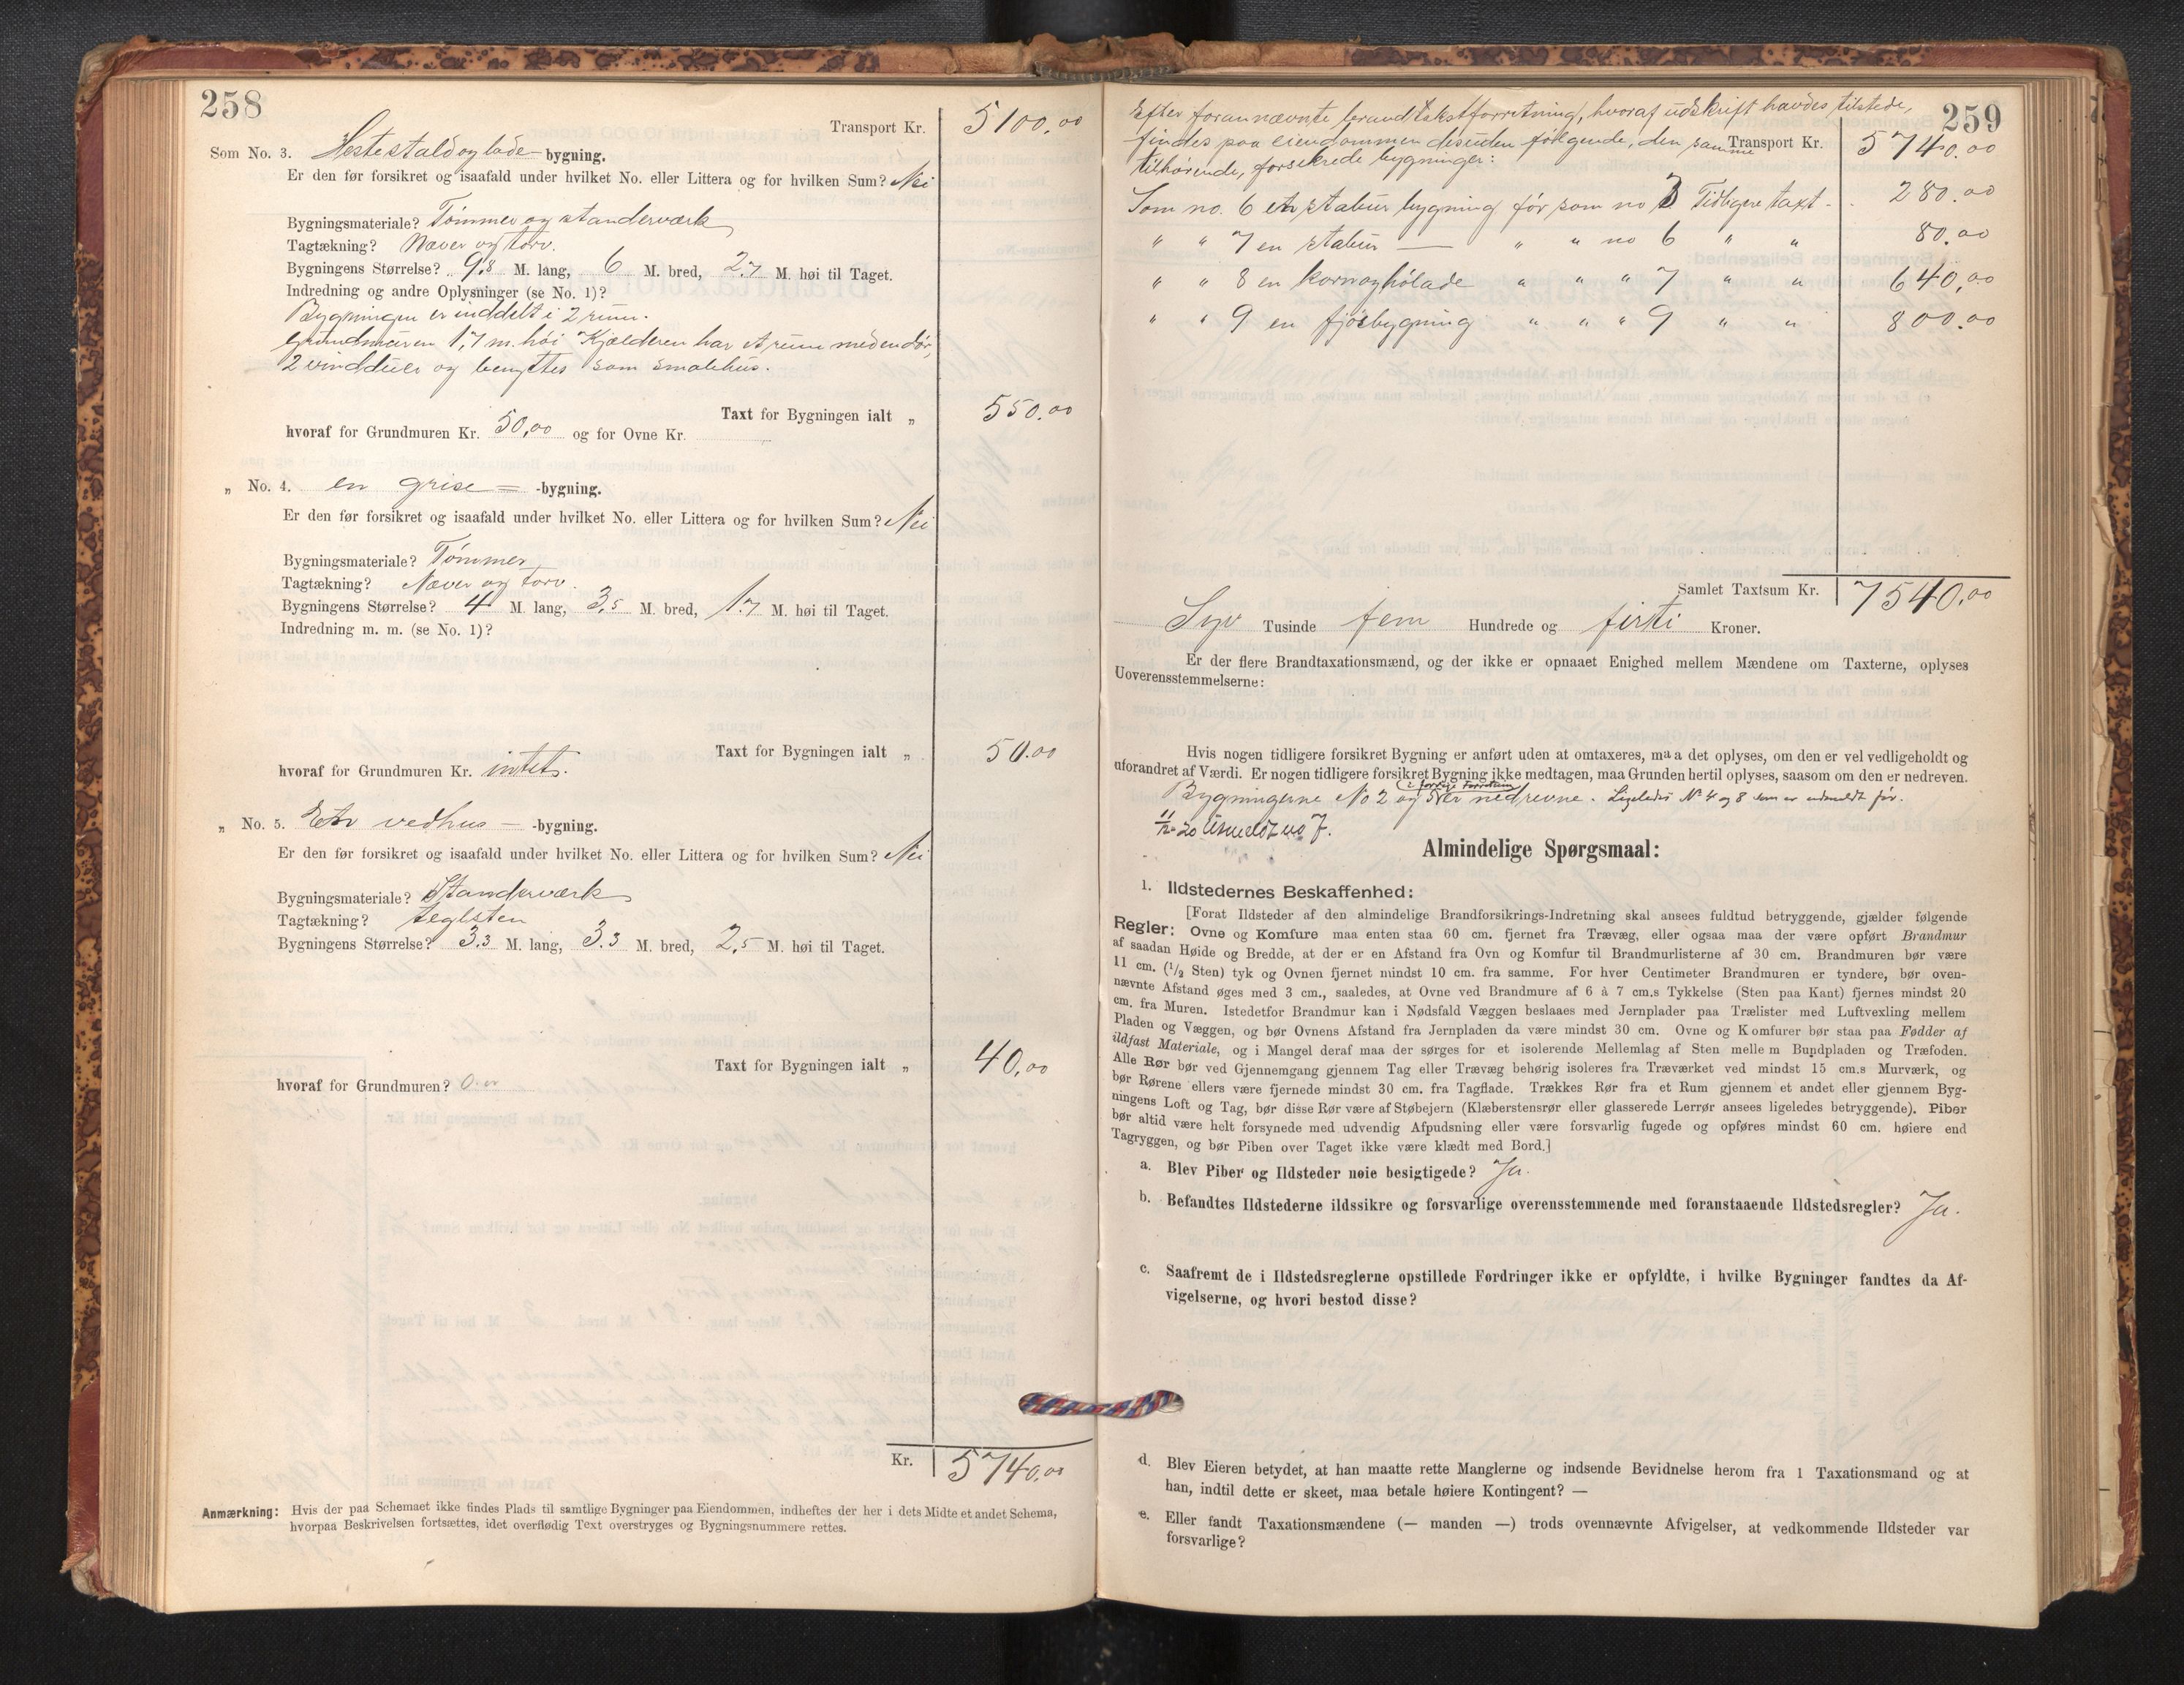 258
Transport Kr. 5100.00
Som No. 3. Hestestald og lade- bygning.
Er den før forsikret og isaafald under hvilket No. eller Littera og for hvilken Sum? Nei
Bygningsmateriale? Tømmer og standerværk
Tagtækning? Næver og torv.
Bygningens Størrelse? 9.8 M. lang, 6 M. bred, 2.7 M. høi til Taget.
Indredning og andre Oplysninger (se No. 1)?
Bygningen er inddelt i 2 rum.
Grundmuren 1,7 m. høi Kjælderen har et rum med en dør,
2 vinduer og benyttes som smalehus.
Taxt for Bygningen ialt „ 550.00
hvoraf for Grundmuren Kr. 50,00 og for Ovne Kr.
„ No. 4. en grise = -bygning.
Er den før forsikret og isaafald under hvilket No. eller Littera og for hvilken Sum? Nei
Bygningsmateriale? Tømmer
Tagtækning? Næver og torv.
Bygningens Størrelse? 4 M. lang, 3,5 M. bred, 1.7 M. høi til Taget.
Indredning m. m. (se No. 1)?
Taxt for Bygningen ialt „ 50.00
hvoraf for Grundmuren Kr. intet.
„ No. 5. Et vedhus — -bygning.
Er den før forsikret og isaafald under hvilket No. eller Littera og for hvilken Sum? Nei
Bygningsmateriale? Standerværk
Tagtækning? teglsten
Bygningens Størrelse? 3.3 M. lang, 3.3 M. bred, 2,5 M. høi til Taget.
Taxt for Bygningen ialt „ 40,00
hvoraf for Grundmuren? 0.00
Kr. 5740,00
Anmærkning: Hvis der paa Schemaet ikke findes Plads til samtlige Bygninger paa Eiendommen, indheftes der her i dets Midte et andet Schema,
hvorpaa Beskrivelsen fortsættes, idet overflødig Text overstryges og Bygningsnummere rettes.
259
Efter forannævnte brandtakstforretning, hvoraf udskrift havdes tilstede,
findes paa eiendommen desuden følgende, den samme
Transport Kr. 5740.00
tilhørende, forsikrede bygninger:
Som no. 6 et stabur bygning før som no 3 Tidligere taxt - 280.00
" " 7 en stabur — " " no 6 " " 80.00
" " 8 en korn og hølade " " " 7 " " 640,00
" " 9 en fjøsbygning " " " 9 " " 800.00
Samlet Taxtsum Kr. 7540.00
Syv Tusinde fem Hundrede og firti Kroner.
Er der flere Brandtaxationsmænd, og der ikke er opnaaet Enighed mellem Mændene om Taxterne, oplyses
Uoverensstemmelserne:
Hvis nogen tidligere forsikret Bygning er anført uden at omtaxeres, maa det oplyses, om den er vel vedligeholdt og
uforandret af Værdi. Er nogen tidligere forsikret Bygning ikke medtagen, maa Grunden hertil oplyses, saasom om den er nedreven.
i forrige Forretning
Bygningerne No 2 og 5 er nedrevne. Ligeledes No 4 og 8 som er udmeldt før.
11/12-20 Utmeldt no 7.
Almindelige Spørgsmaal:
1. Ildstedernes Beskaffenhed:
[Forat Ildsteder af den almindelige Brandforsikrings-Indretning skal ansees fuldtud betryggende, gjælder følgende
Regler: Ovne og Komfure maa enten staa 60 cm. fjernet fra Trævæg, eller ogsaa maa der være opført Brandmur
af saadan Høide og Bredde, at der er en Afstand fra Ovn og Komfur til Brandmurlisterne af 30 cm. Brandmuren bør være
11 cm. (1/2 Sten) tyk og Ovnen fjernet mindst 10 cm. fra samme. For hver Centimeter Brandmuren er tyndere, bør oven-
nævnte Afstand øges med 3 cm., saaledes, at Ovne ved Brandmure af 6 à 7 cm.s Tykkelse (Sten paa Kant) fjernes mindst 20
cm. fra Muren. Istedetfor Brandmur kan i Nødsfald Væggen beslaaes med Jernplader paa Trælister med Luftvexling mellem
Pladen og Væggen, og bør Ovnens Afstand fra Jernpladen da være mindst 30 cm. Ovne og Komfurer bør staa paa Fødder af
ildfast Materiale, og i Mangel deraf maa der sørges for et isolerende Mellemlag af Sten mellem Bundpladen og Træfoden.
Alle Rør bør ved Gjennemgang gjennem Tag eller Trævæg behørig isoleres fra Træværket ved mindst 15 cm.s Murværk, og
bør Rørene ellers være fjernede mindst 30 cm. fra Tagflade. Trækkes Rør fra et Rum gjennem et andet eller gjennem Byg-
ningens Loft og Tag, bør disse Rør være af Støbejern (Klæberstensrør eller glasserede Lerrør ansees ligeledes betryggende). Piber
bør altid være helt forsynede med udvendig Afpudsning eller være forsvarlig fugede og opføres mindst 60 cm. høiere end
Tagryggen, og bør Piben over Taget ikke være klædt med Bord.]
a. Blev Piber og Ildsteder nøie besigtigede? Ja.
b. Befandtes Ildstederne ildssikre og forsvarlige overensstemmende med foranstaaende Ildstedsregler? Ja.
c. Saafremt de i Ildstedsreglerne opstillede Fordringer ikke er opfyldte, i hvilke Bygninger fandtes da Af-
vigelserne, og hvori bestod disse?
d. Blev Eieren betydet, at han maatte rette Manglerne og indsende Bevidnelse herom fra 1 Taxationsmand og at
han, indtil dette er skeet, maa betale høiere Kontingent? —
e. Eller fandt Taxationsmændene (— manden —) trods ovennævnte Afvigelser, at vedkommende Ildsteder var
forsvarlige?